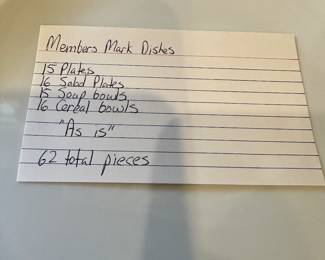 Members Mark Dishes
15 Plates
16 Salad Plates
15 Soup bowls
16 Cereal bowls
"As is"
62 total pieces